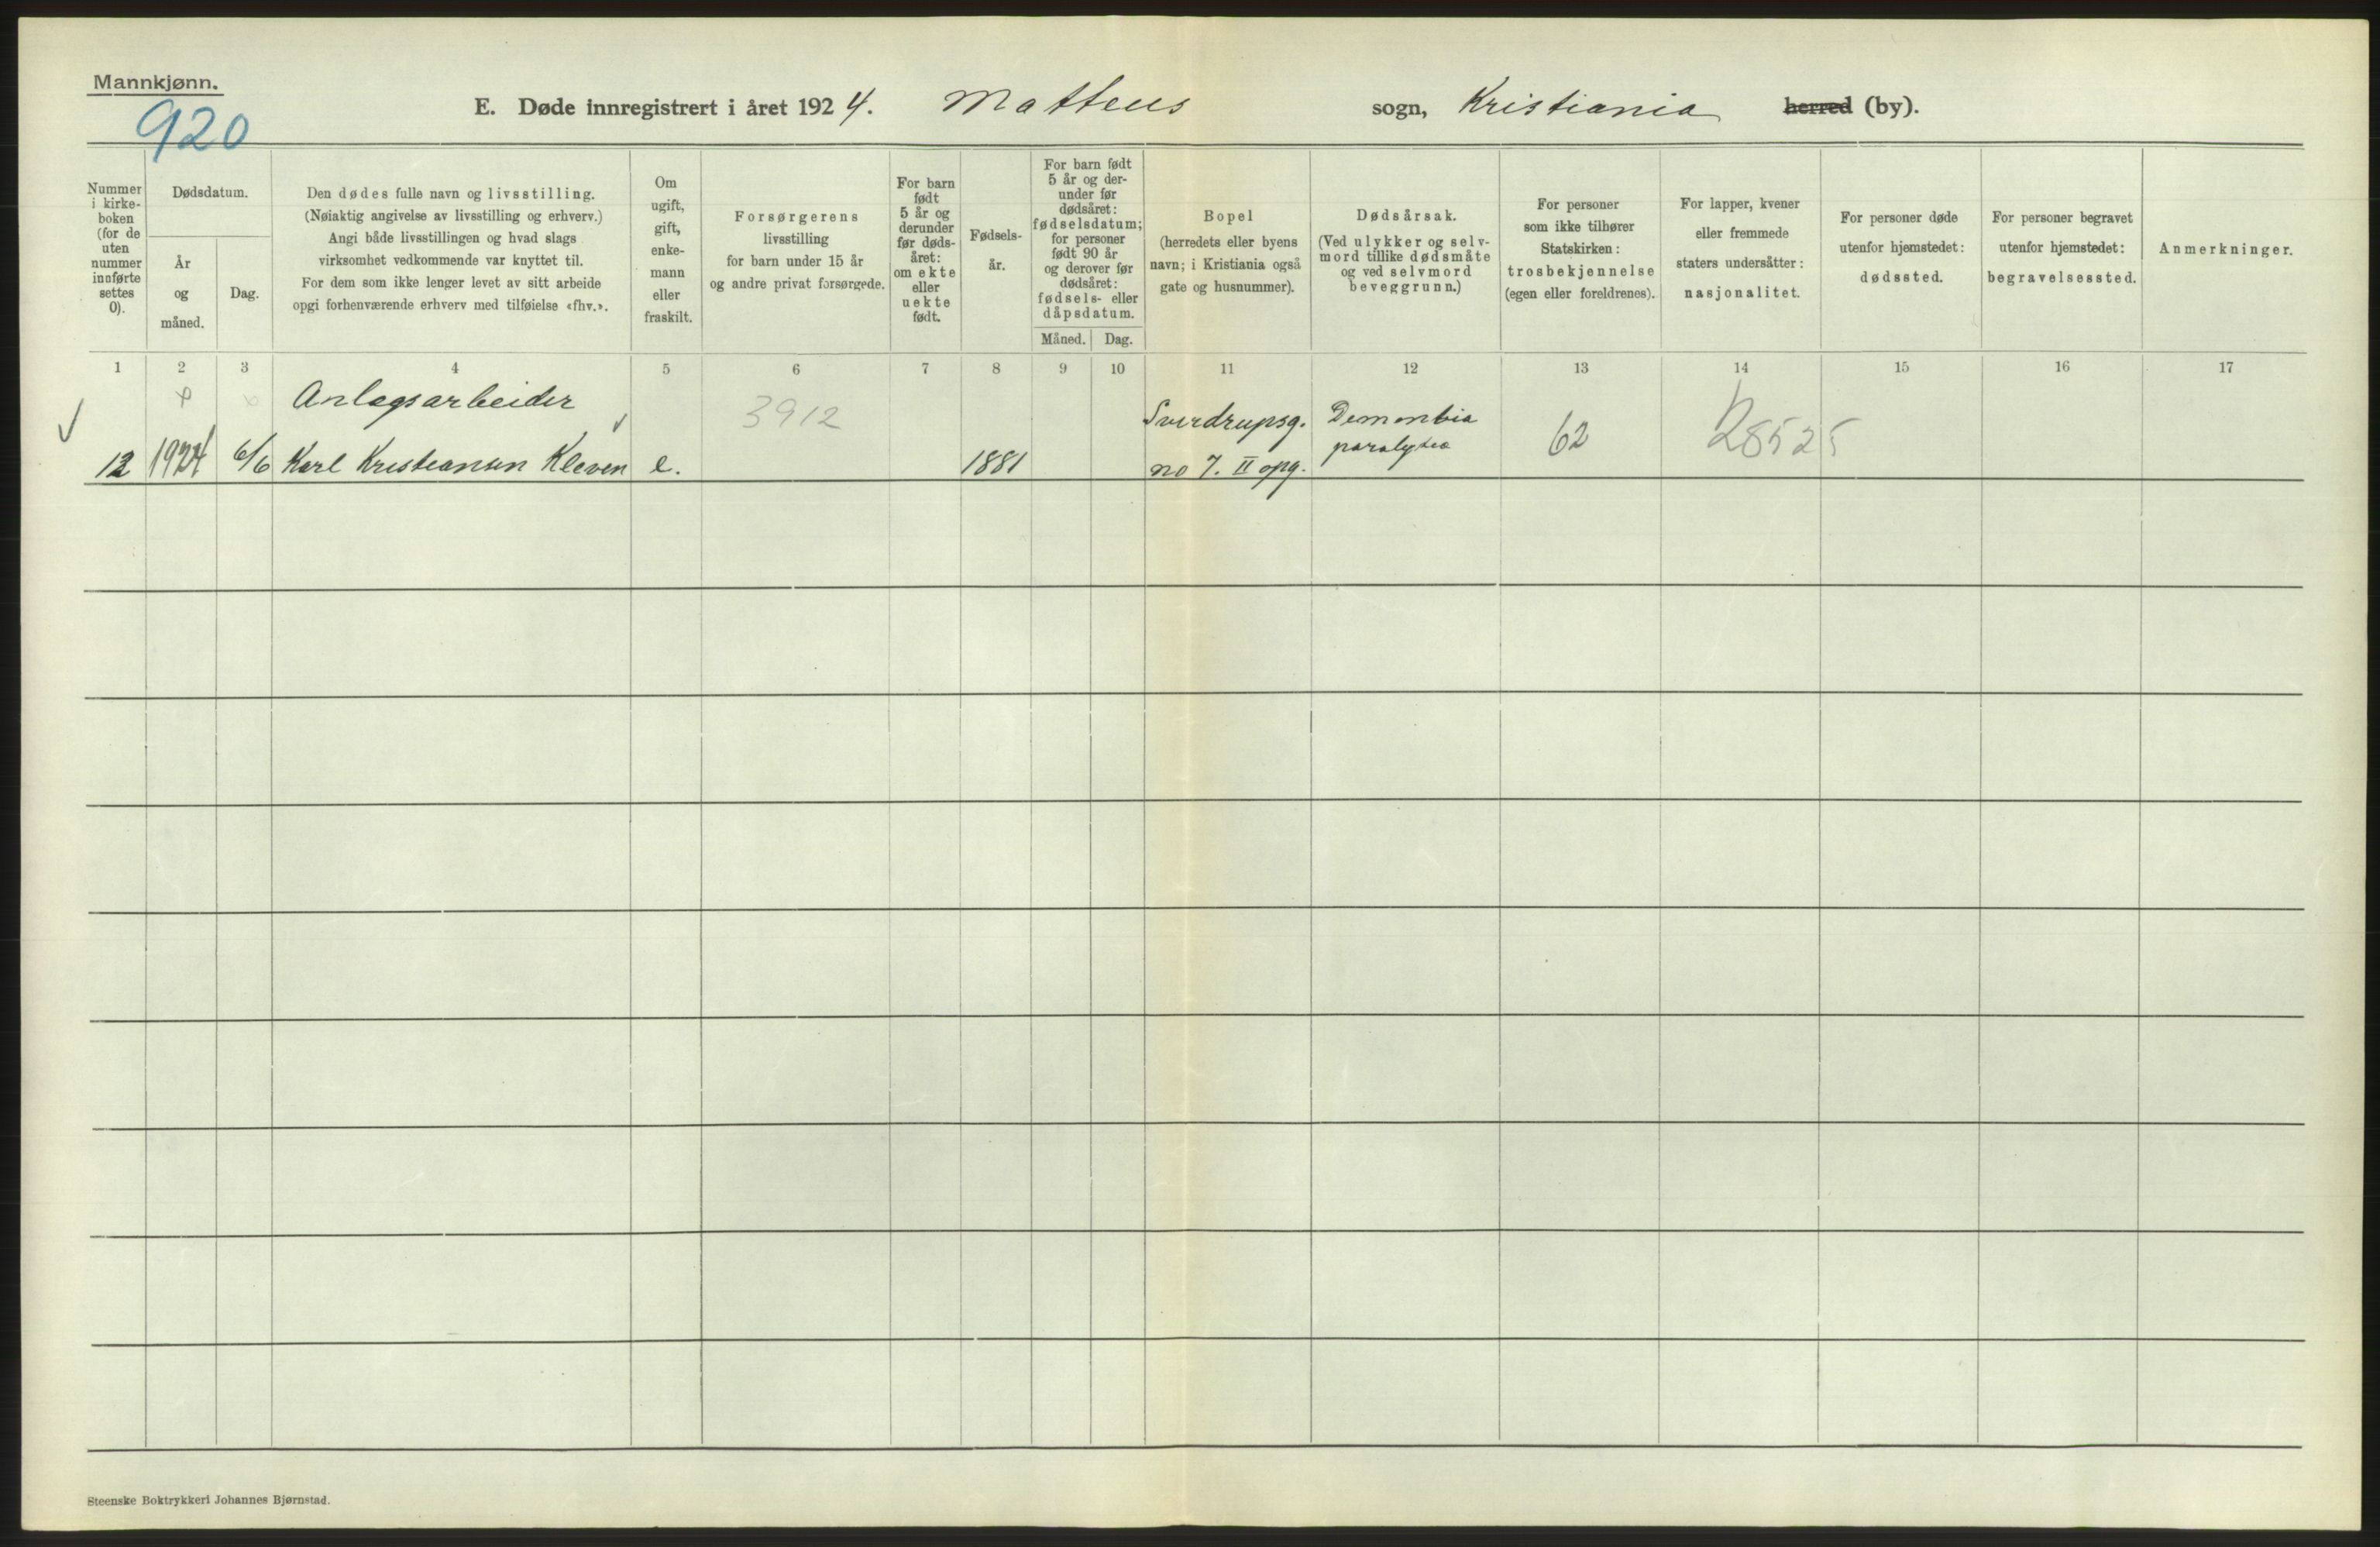 Mannkjønn.
920
E. Døde innregistrert i året 1924. Matteus sogn, Kristiania herred (by).
Nummer i kirke- boken (for de uten nummer innførte settes 0).
Dødsdatum.
År og måned.
Dag.
Den dødes fulle navn og livsstilling.
(Nøiaktig angivelse av livsstilling og erhverv.)
Angi både livsstillingen og hvad slags
virksomhet vedkommende var knyttet til.
For dem som ikke lenger levet av sitt arbeide
opgi forhenværende erhverv med tilføielse «fhv.».
Om ugift, gift, enke- mann eller fraskilt.
Forsørgerens
livsstilling
for barn under 15 år
og andre privat forsørgede.
For barn født 5 år og derunder før døds- året: om ekte eller uekte født.
Fødsels- år.
For barn født 5 år og der- under før dødsåret: fødselsdatum; for personer født 90 år og derover før dødsåret: fødsels- eller dåpsdatum.
Måned.
Dag.
Bopel
(herredets eller byens
navn; i Kristiania også
gate og husnummer).
Dødsårsak.
(Ved ulykker og selv-
mord tillike dødsmåte
og ved selvmord
beveggrunn.)
For personer
som ikke tilhører
Statskirken:
trosbekjennelse
(egen eller foreldrenes).
For lapper, kvener
eller fremmede
staters undersåtter:
nasjonalitet.
For personer døde
utenfor hjemstedet:
dødssted.
For personer begravet
utenfor hjemstedet:
begravelsessted.
Anmerkninger.
1 2 3 4 5 6 7 8 9 10 11 12 13 14 15 16 17
Anlegsarbeider 3912 Sverdrupsg. Dementia
paralytica 62 28525
12 1924 6/6 Karl Kristiansen Kleven e. 1881 no 7. II opg.
Steenske Boktrykkeri Johannes Bjørnstad.